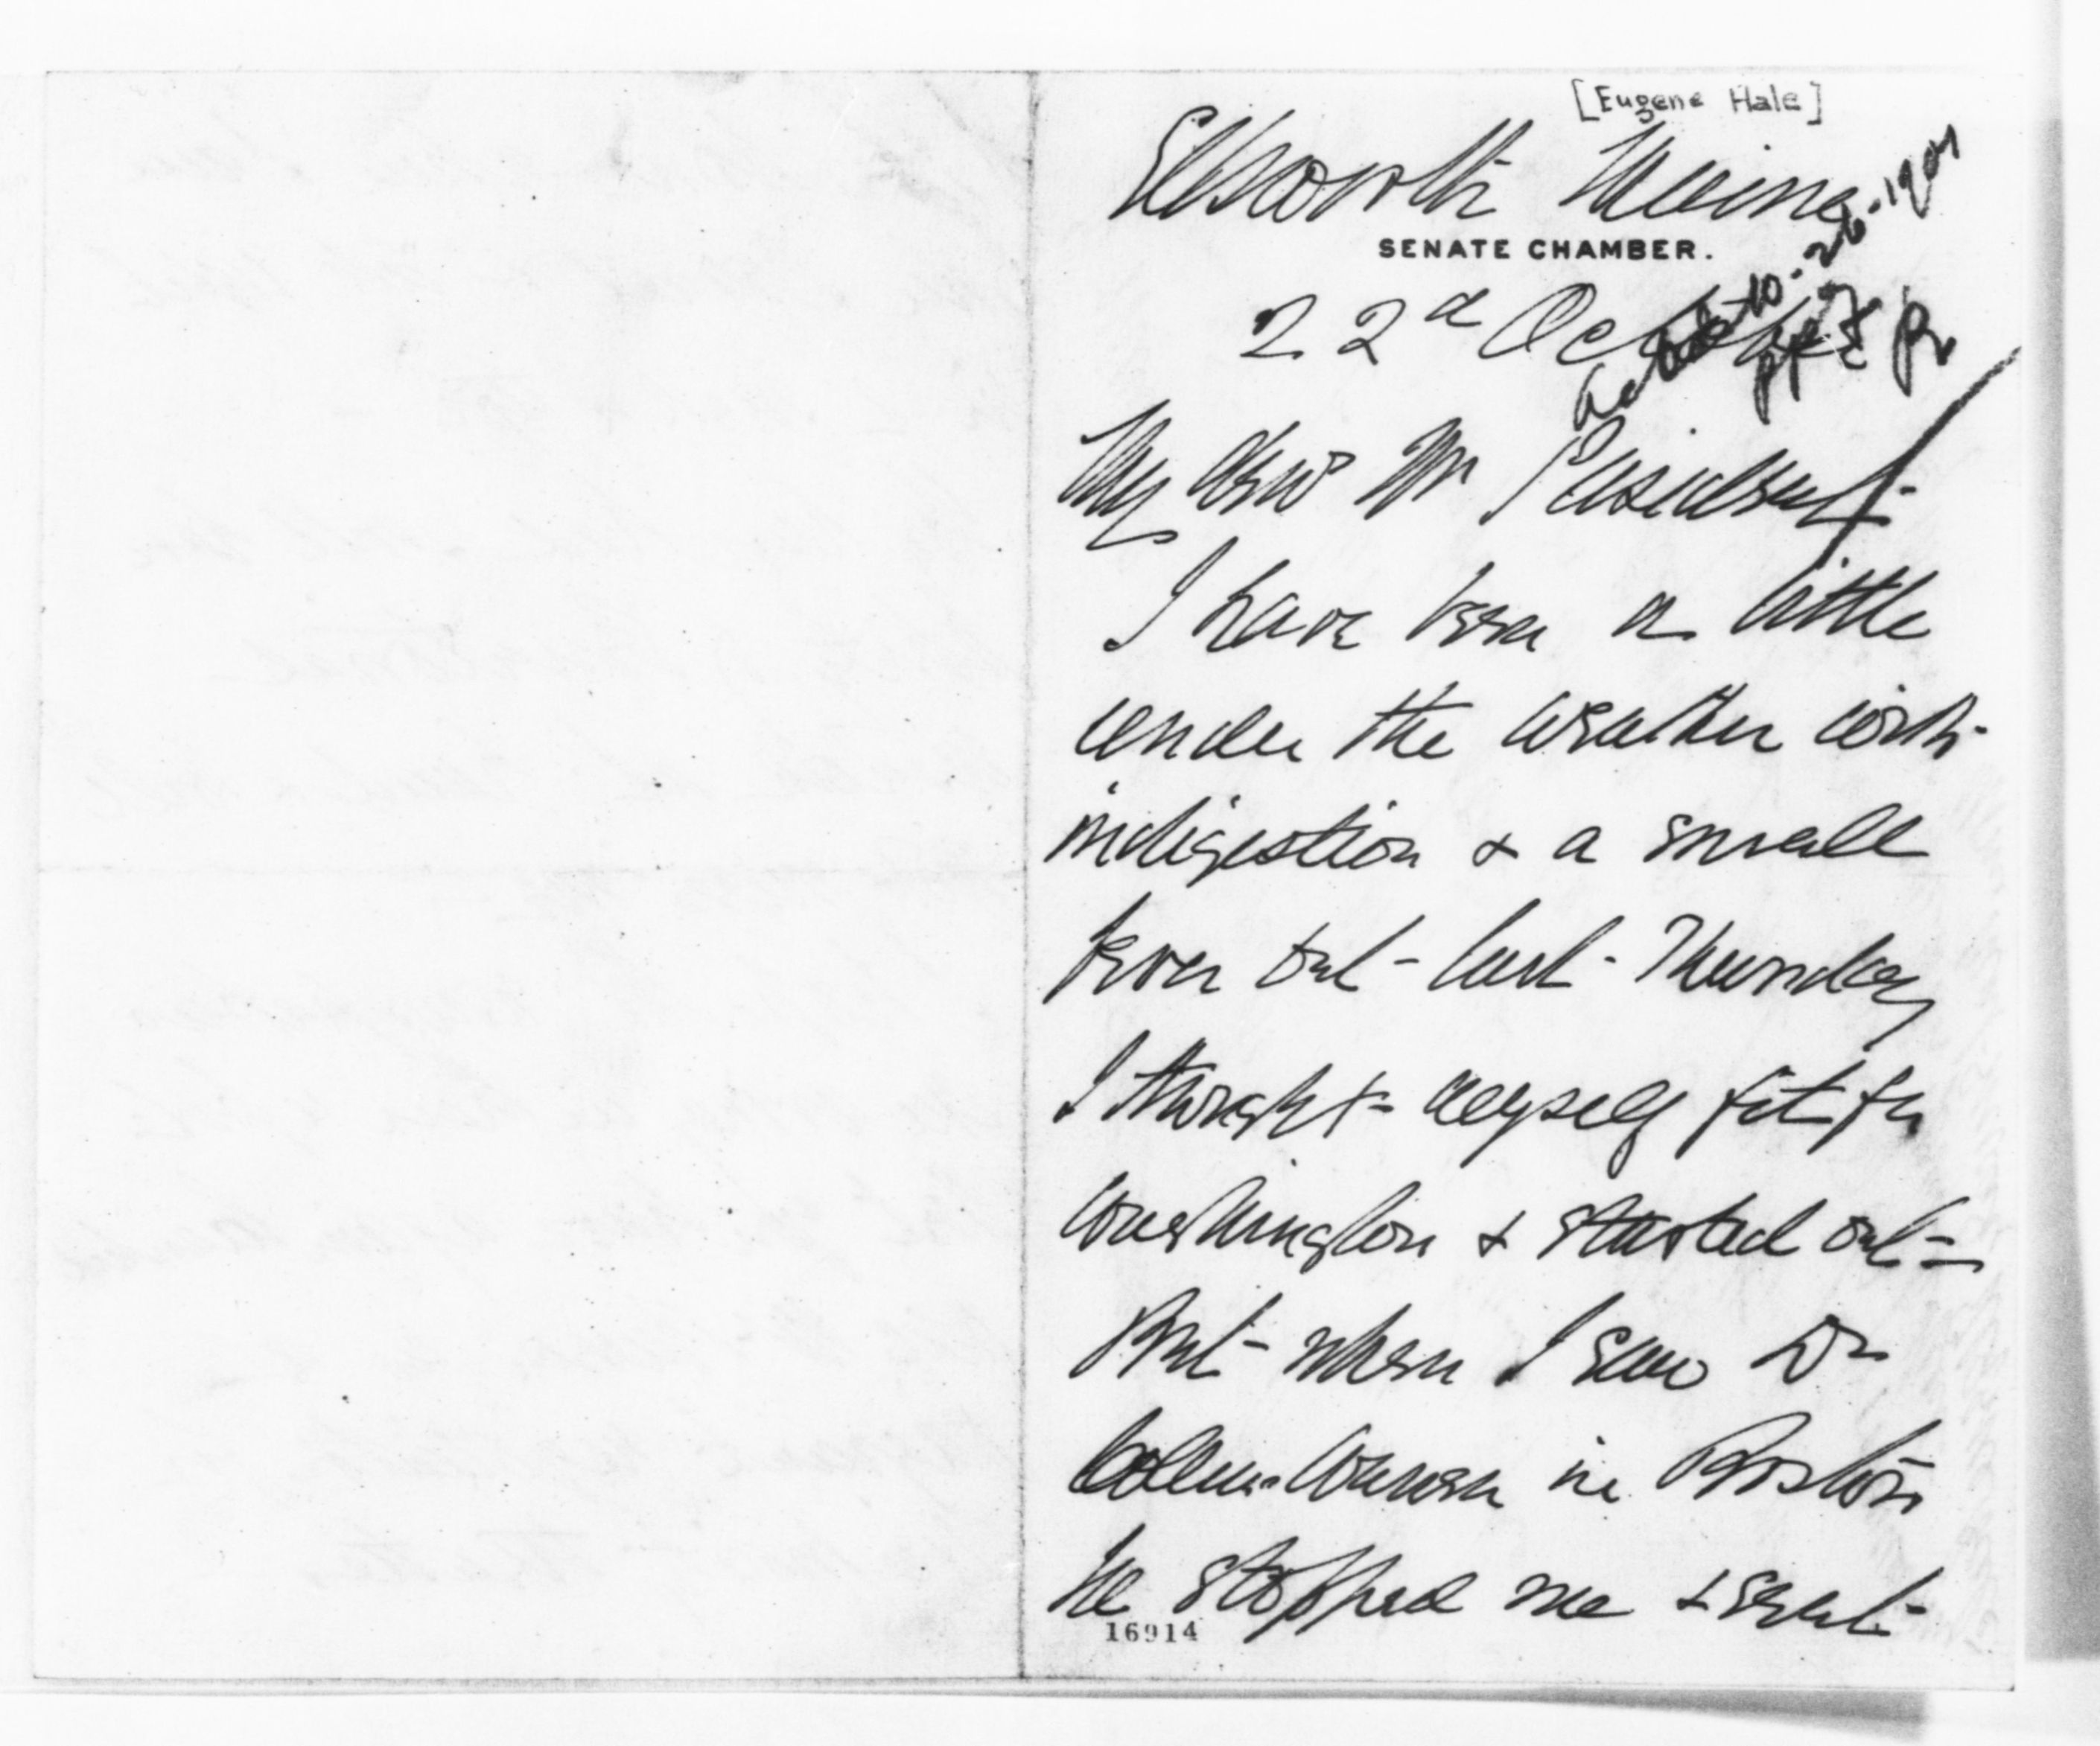 [Eugene Hale]
Ellsworth Maine
SENATE CHAMBER.
22d October
10-26-1901
My dear Mr President-
I have been a little
under the weather with
indigestion & a small
fever but - last - Thursday
I thought myself fit for
Washington & started out-
But when I saw Dr
in Boston
he stopped me & sent
16914